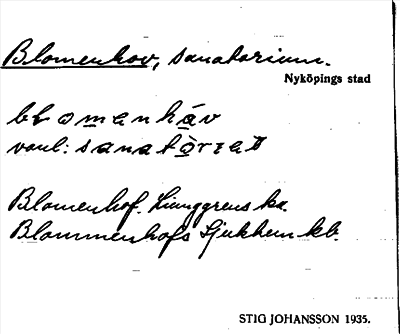 Blomenhov, sanatorium.
Nyköpings stad
blomenhàv
vanl: sanatòrıet
Blomenhof. Ljunggrens ka.
Blommenhofs Sjukhem kb.
STIG JOHANSSON 1935.